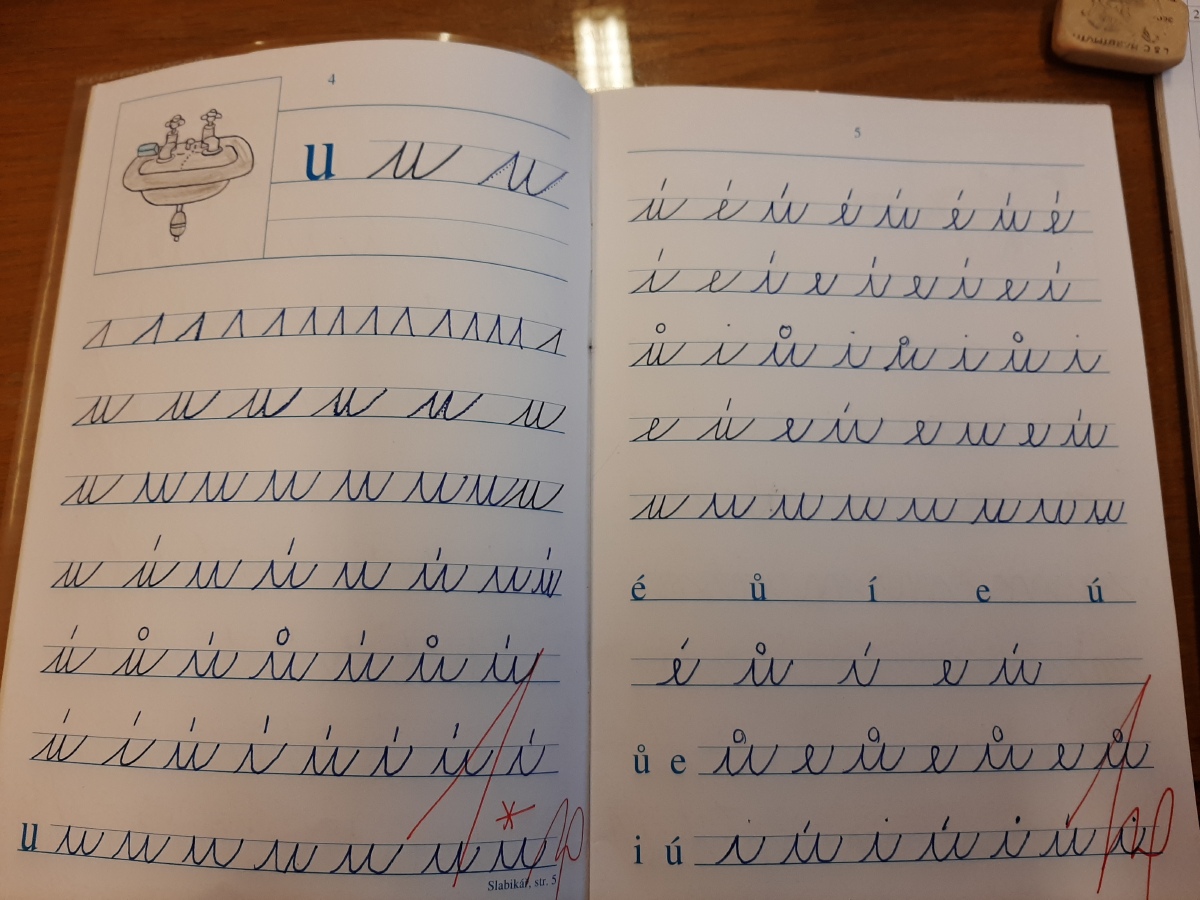 4
u u u
u u u u u u
u u u u u u u u
u ú u ú u ú u ú
ú ů ú ů ú ů ú
ú í ú í ú í ú í
u u u u u u u u
Slabikář, str. 5
5
ú é ú é ú é ú é
í e í e í e í e í
ů i ů i ů i ů i
e ú e ú e u e ú
u u u u u u u u
é ů í e ú
é ů í e ú
ů e ů e ů e ů e ů
i ú i ú i ú i ú i